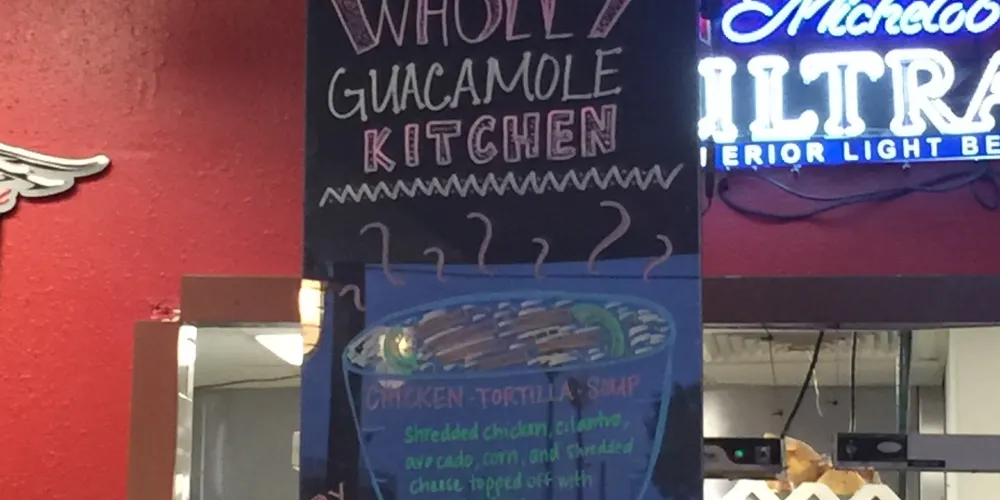 WHOLLY
GUACAMOLE
KITCHEN
CHICKEN - TORTILLA - SOUP
Shredded chicken, cilantro,
avocado, corn, and shredded
cheese topped off with
Michelob
ULTRA
ERIOR LIGHT BE